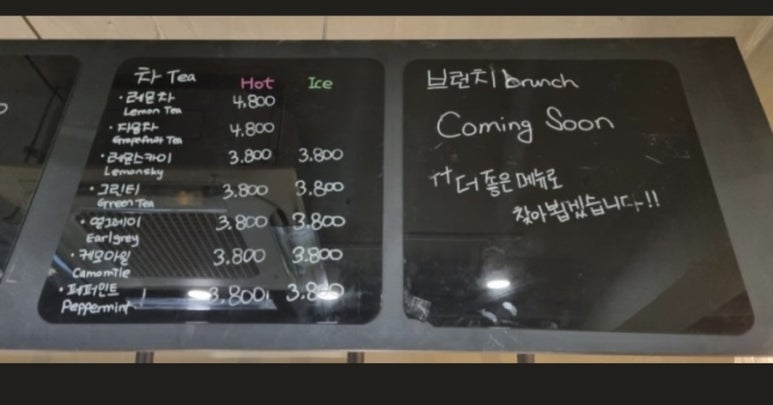 차 Tea Hot Ice
· 레몬차 4,800
Lemon Tea
· 자몽차 4,800
Grapefruit Tea
· 레몬스카이 3.800 3.800
Lemonsky
· 그린티 3.800 3.800
Green Tea
· 얼그레이 3.800 3.800
Earlgrey
· 케모마일 3.800 3.800
Camomile
· 페퍼민트 3.800 3.800
Peppermint
브런치 brunch
Coming Soon
더 좋은 메뉴로
찾아뵙겠습니다!!